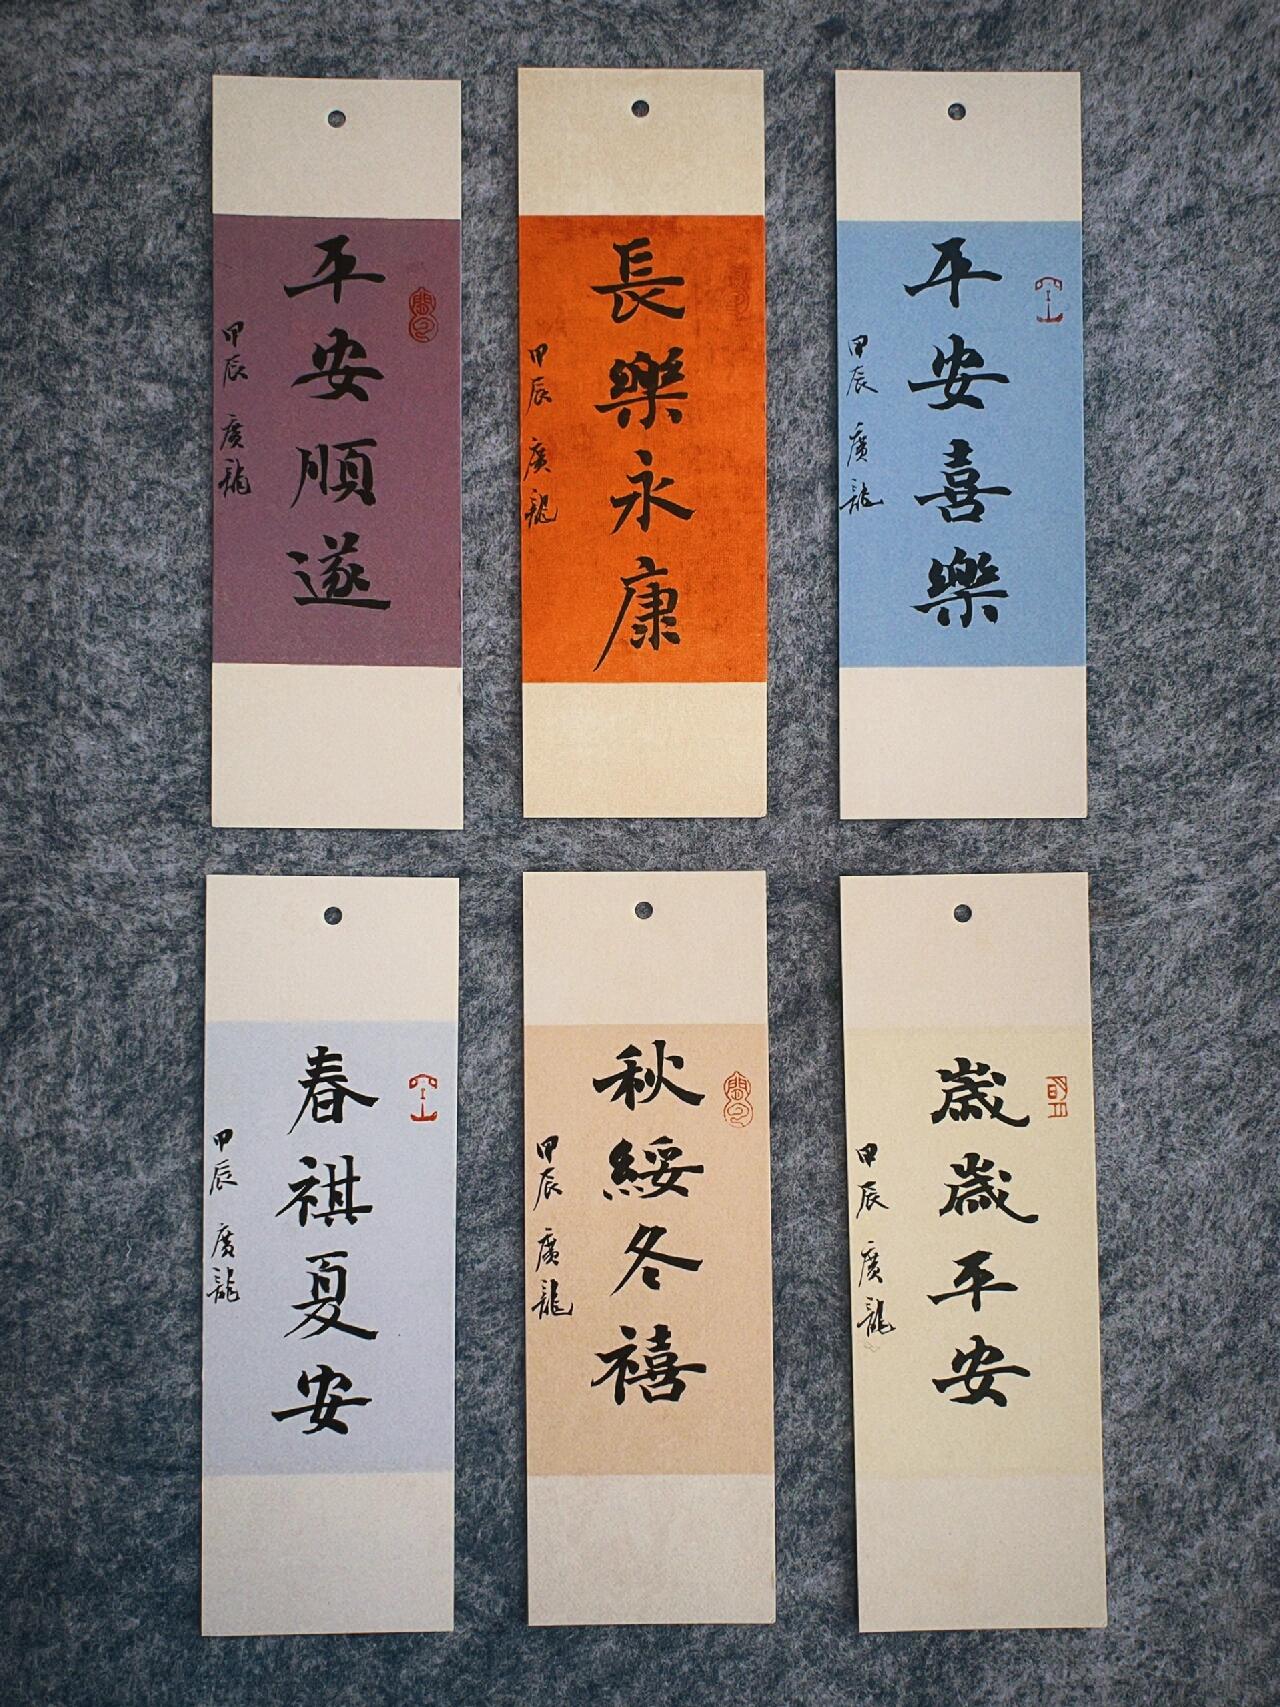 平安順遂
甲辰 廣龍
長樂永康
甲辰 廣龍
平安喜樂
甲辰 廣龍
春祺夏安
甲辰 廣龍
秋綏冬禧
甲辰 廣龍
歲歲平安
甲辰 廣龍